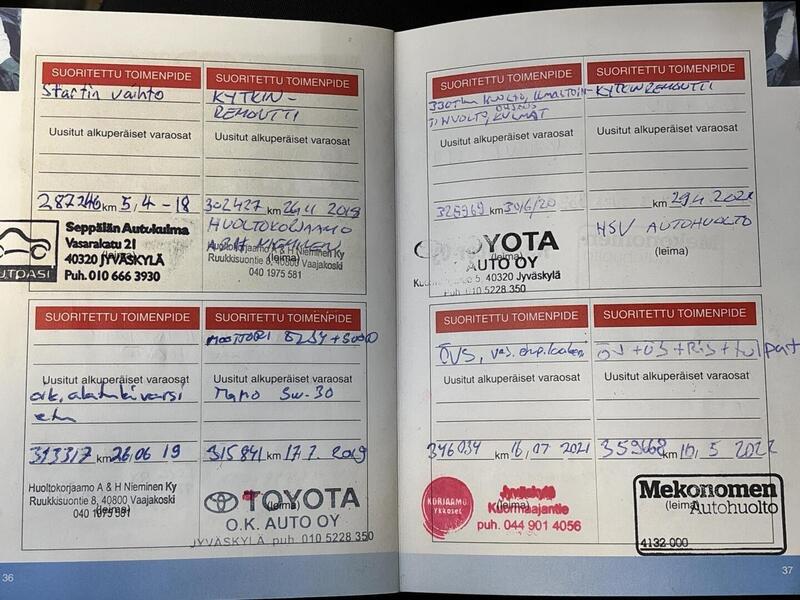 SUORITETTU TOIMENPIDE
Startin vaihto
Uusitut alkuperäiset varaosat
287246 km 5,4-18
Seppälän Autokulma
Vasarakatu 21
40320 JYVÄSKYLÄ
(leima)
Puh. 010 666 3930
AUTOASI
SUORITETTU TOIMENPIDE
KYTKIN-
REMONTTI
Uusitut alkuperäiset varaosat
302427 km 26.4 2019
HUOLTOKORJAAMO
A & H NIEMINEN
Huoltokorjaamo A & H Nieminen Ky
(leima)
Ruukkisuontie 8, 40800 Vaajakoski
040 1975 581
SUORITETTU TOIMENPIDE
Uusitut alkuperäiset varaosat
ok, alatukivarsi
313317 km 26.06 19
Huoltokorjaamo A & H Nieminen Ky
Ruukkisuontie 8, 40800 Vaajakoski
(leima)
040 1975 581
SUORITETTU TOIMENPIDE
MOOTTORI ÖLJY + SUOD
Uusitut alkuperäiset varaosat
5w-30
315841 km 17.7 2019
TOYOTA
(leima)
O.K. AUTO OY
JYVÄSKYLÄ puh. 010 5228 350
36
SUORITETTU TOIMENPIDE
330Tkm HUOLTO, ILMASTOIN-
TIHUOLTO, OHJAUS
KULMAT
Uusitut alkuperäiset varaosat
325969 km 30/6/20
TOYOTA
AUTO OY
(leima)
5, 40320 Jyväskylä
Puh. 010 5228 350
SUORITETTU TOIMENPIDE
KYTKINREMOTTI
Uusitut alkuperäiset varaosat
km 29.4 2021
HSV AUTOHUOLTO
(leima)
SUORITETTU TOIMENPIDE
ÖVS, vas.
Uusitut alkuperäiset varaosat
346034 km 16,07 2021
KORJAAMO
YKKÖSET
Jyväskylä
(leima)
Kuormaajantie
puh. 044 901 4056
SUORITETTU TOIMENPIDE
ÖJ + ÖS + RS + tulpat
Uusitut alkuperäiset varaosat
359668 km 10, 5 2022
Mekonomen
(leima)
Autohuolto
4132 000
37